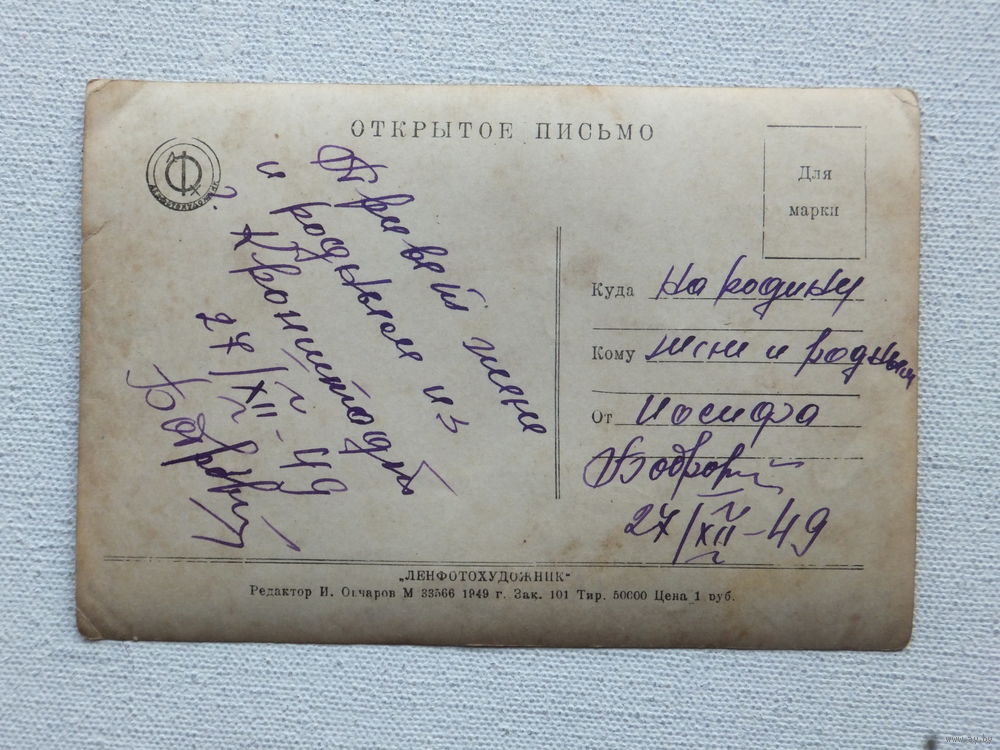 ОТКРЫТОЕ ПИСЬМО
Для
марки
Привет жене
и родным из
г. Кронштадт
27/XII-49
Куда на родину
Кому жене и родным
От Иосифа
27/XII-49
„ЛЕНФОТОХУДОЖНИК“
Редактор И. Овчаров М 33566 1949 г. Зак. 101 Тир. 50000 Цена 1 руб.